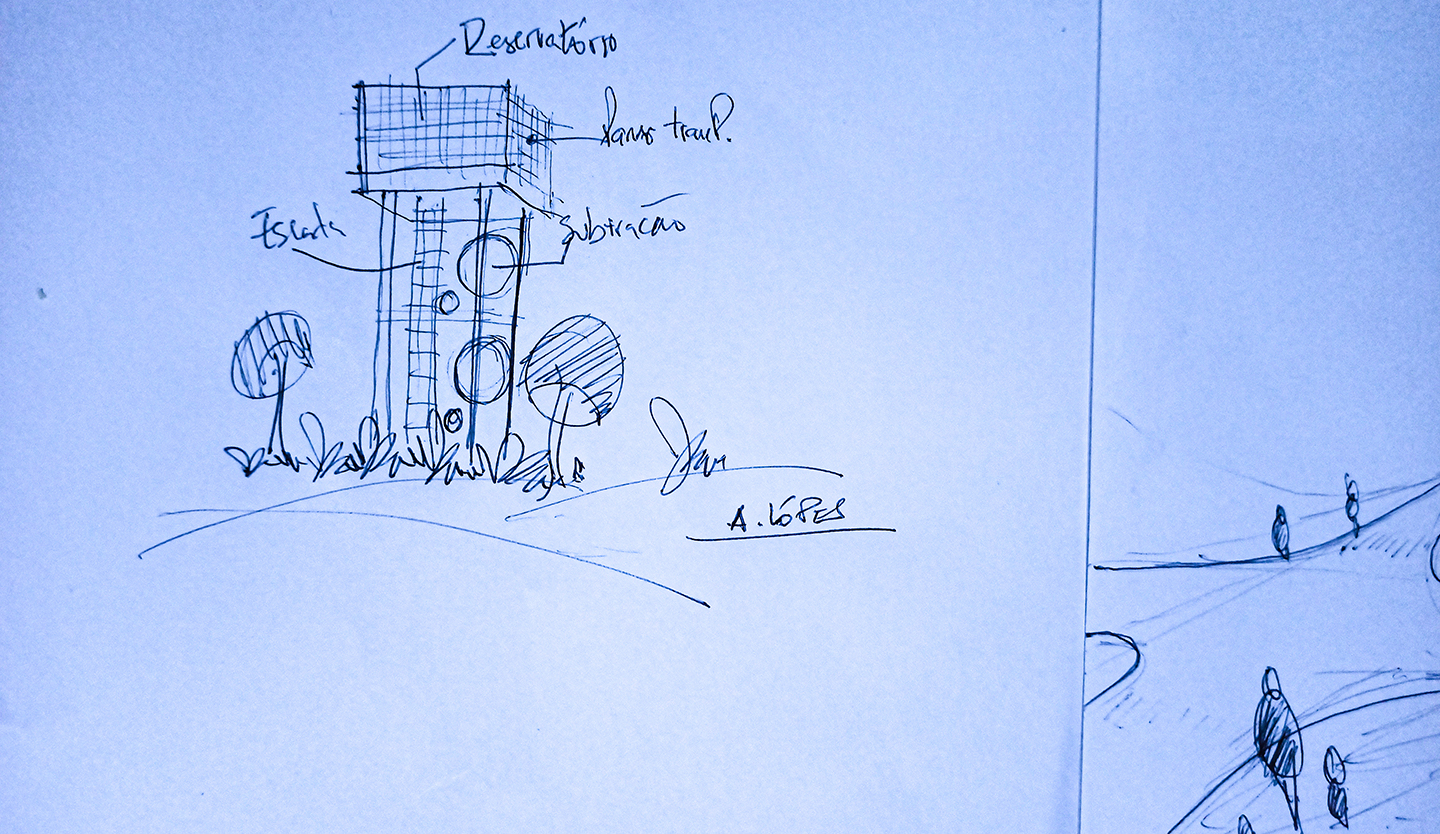 Reservatório
Pano transp.
Escada
Subtração
A. LÓPES